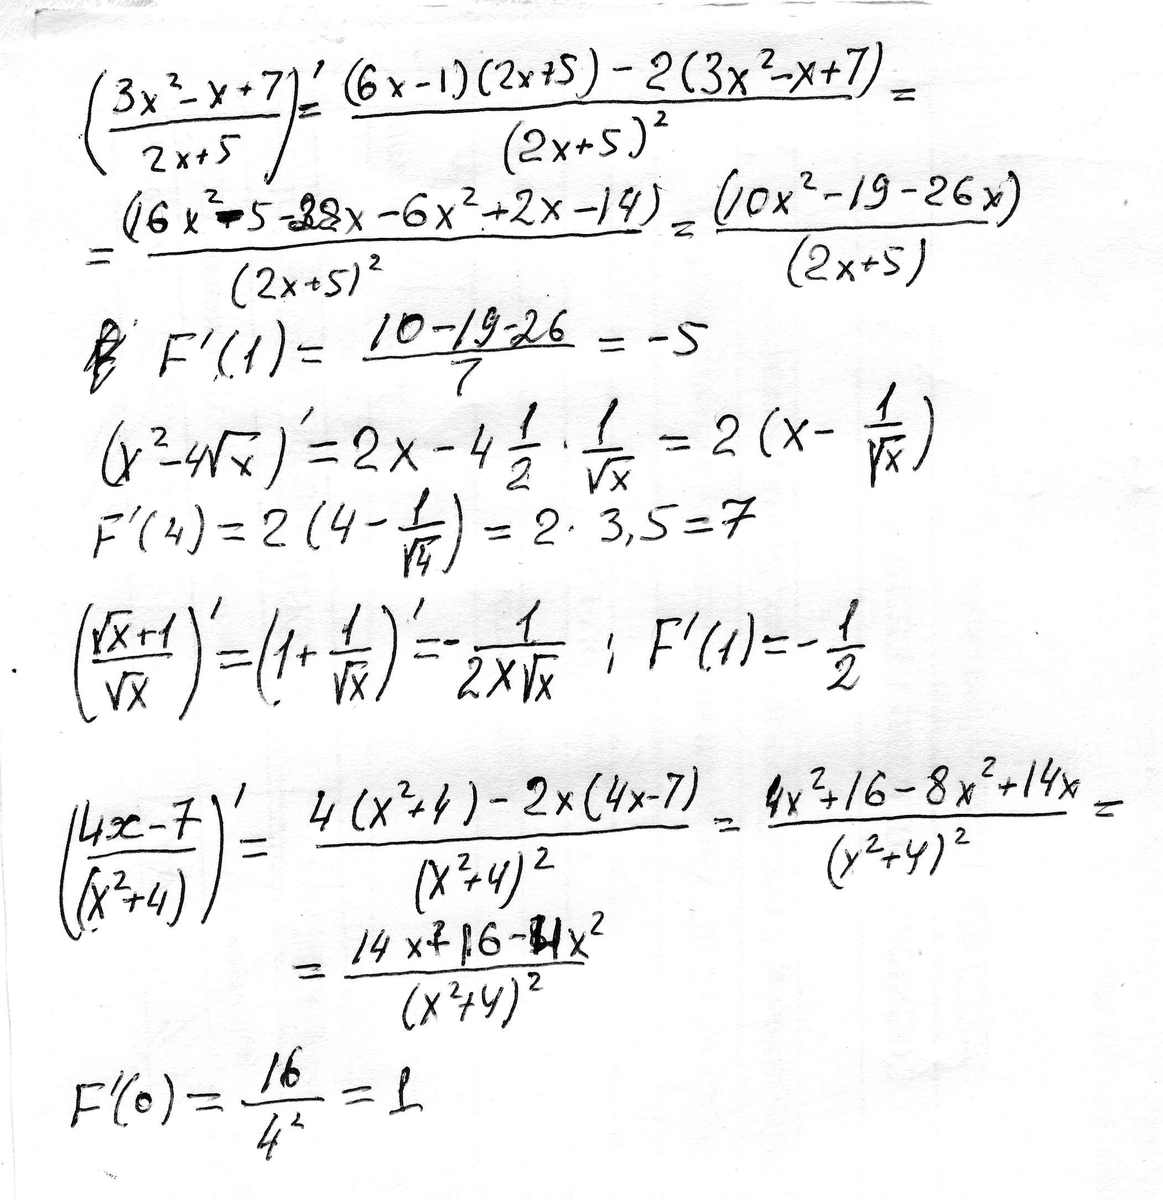 (3x² - x + 7 / 2x + 5)' = (6x - 1)(2x + 5) - 2(3x² - x + 7) / (2x + 5)² =
= (16x² - 5 - 28x - 6x² + 2x - 14) / (2x + 5)² = (10x² - 19 - 26x) / (2x + 5)
F'(1) = 10 - 19 - 26 / 7 = -5
(x² - 4√x)' = 2x - 4 1/2 · 1/√x = 2(x - 1/√x)
F'(4) = 2(4 - 1/√4) = 2 · 3,5 = 7
(√x + 1 / √x)' = (1 + 1/√x)' = - 1 / 2x√x ; F'(1) = - 1/2
(4x - 7 / (x² + 4))' = 4(x² + 4) - 2x(4x - 7) / (x² + 4)² = 4x² + 16 - 8x² + 14x / (x² + 4)² =
= 14x + 16 - 4x² / (x² + 4)²
F'(0) = 16 / 4² = 1